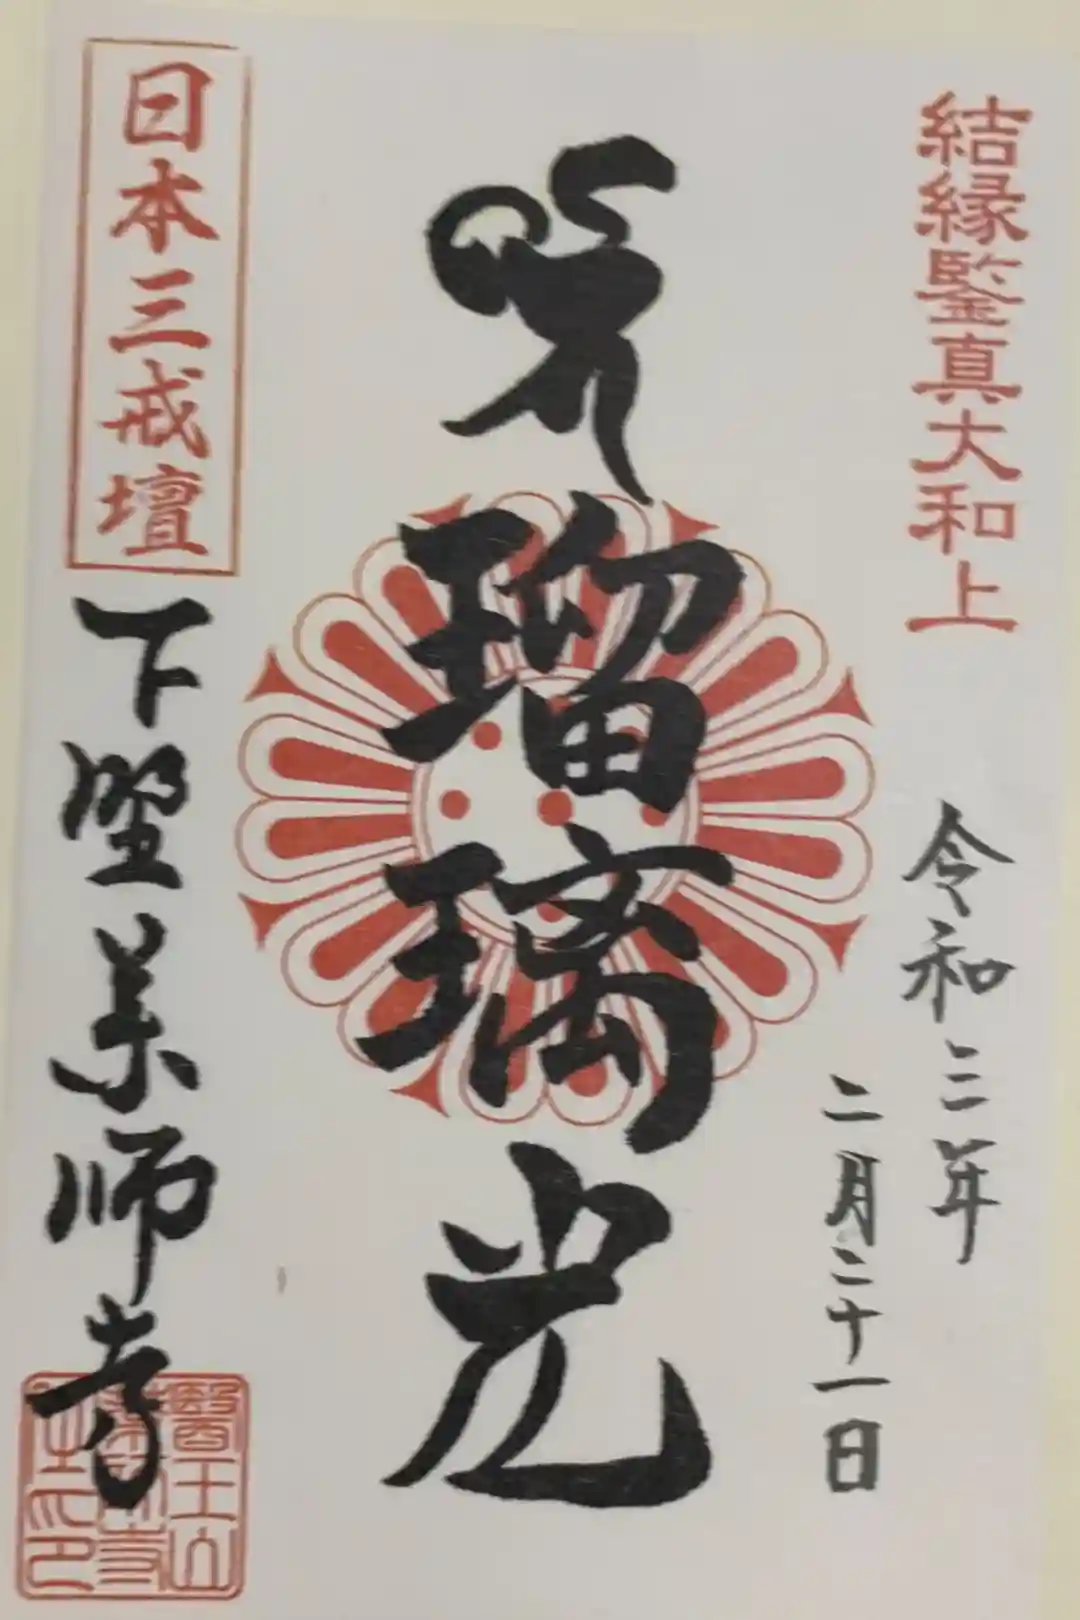 結縁鑒真大和上
令和三年
二月二十一日
瑠璃光
日本三戒壇
下墅薬師寺
醫王山
藥師寺
之印